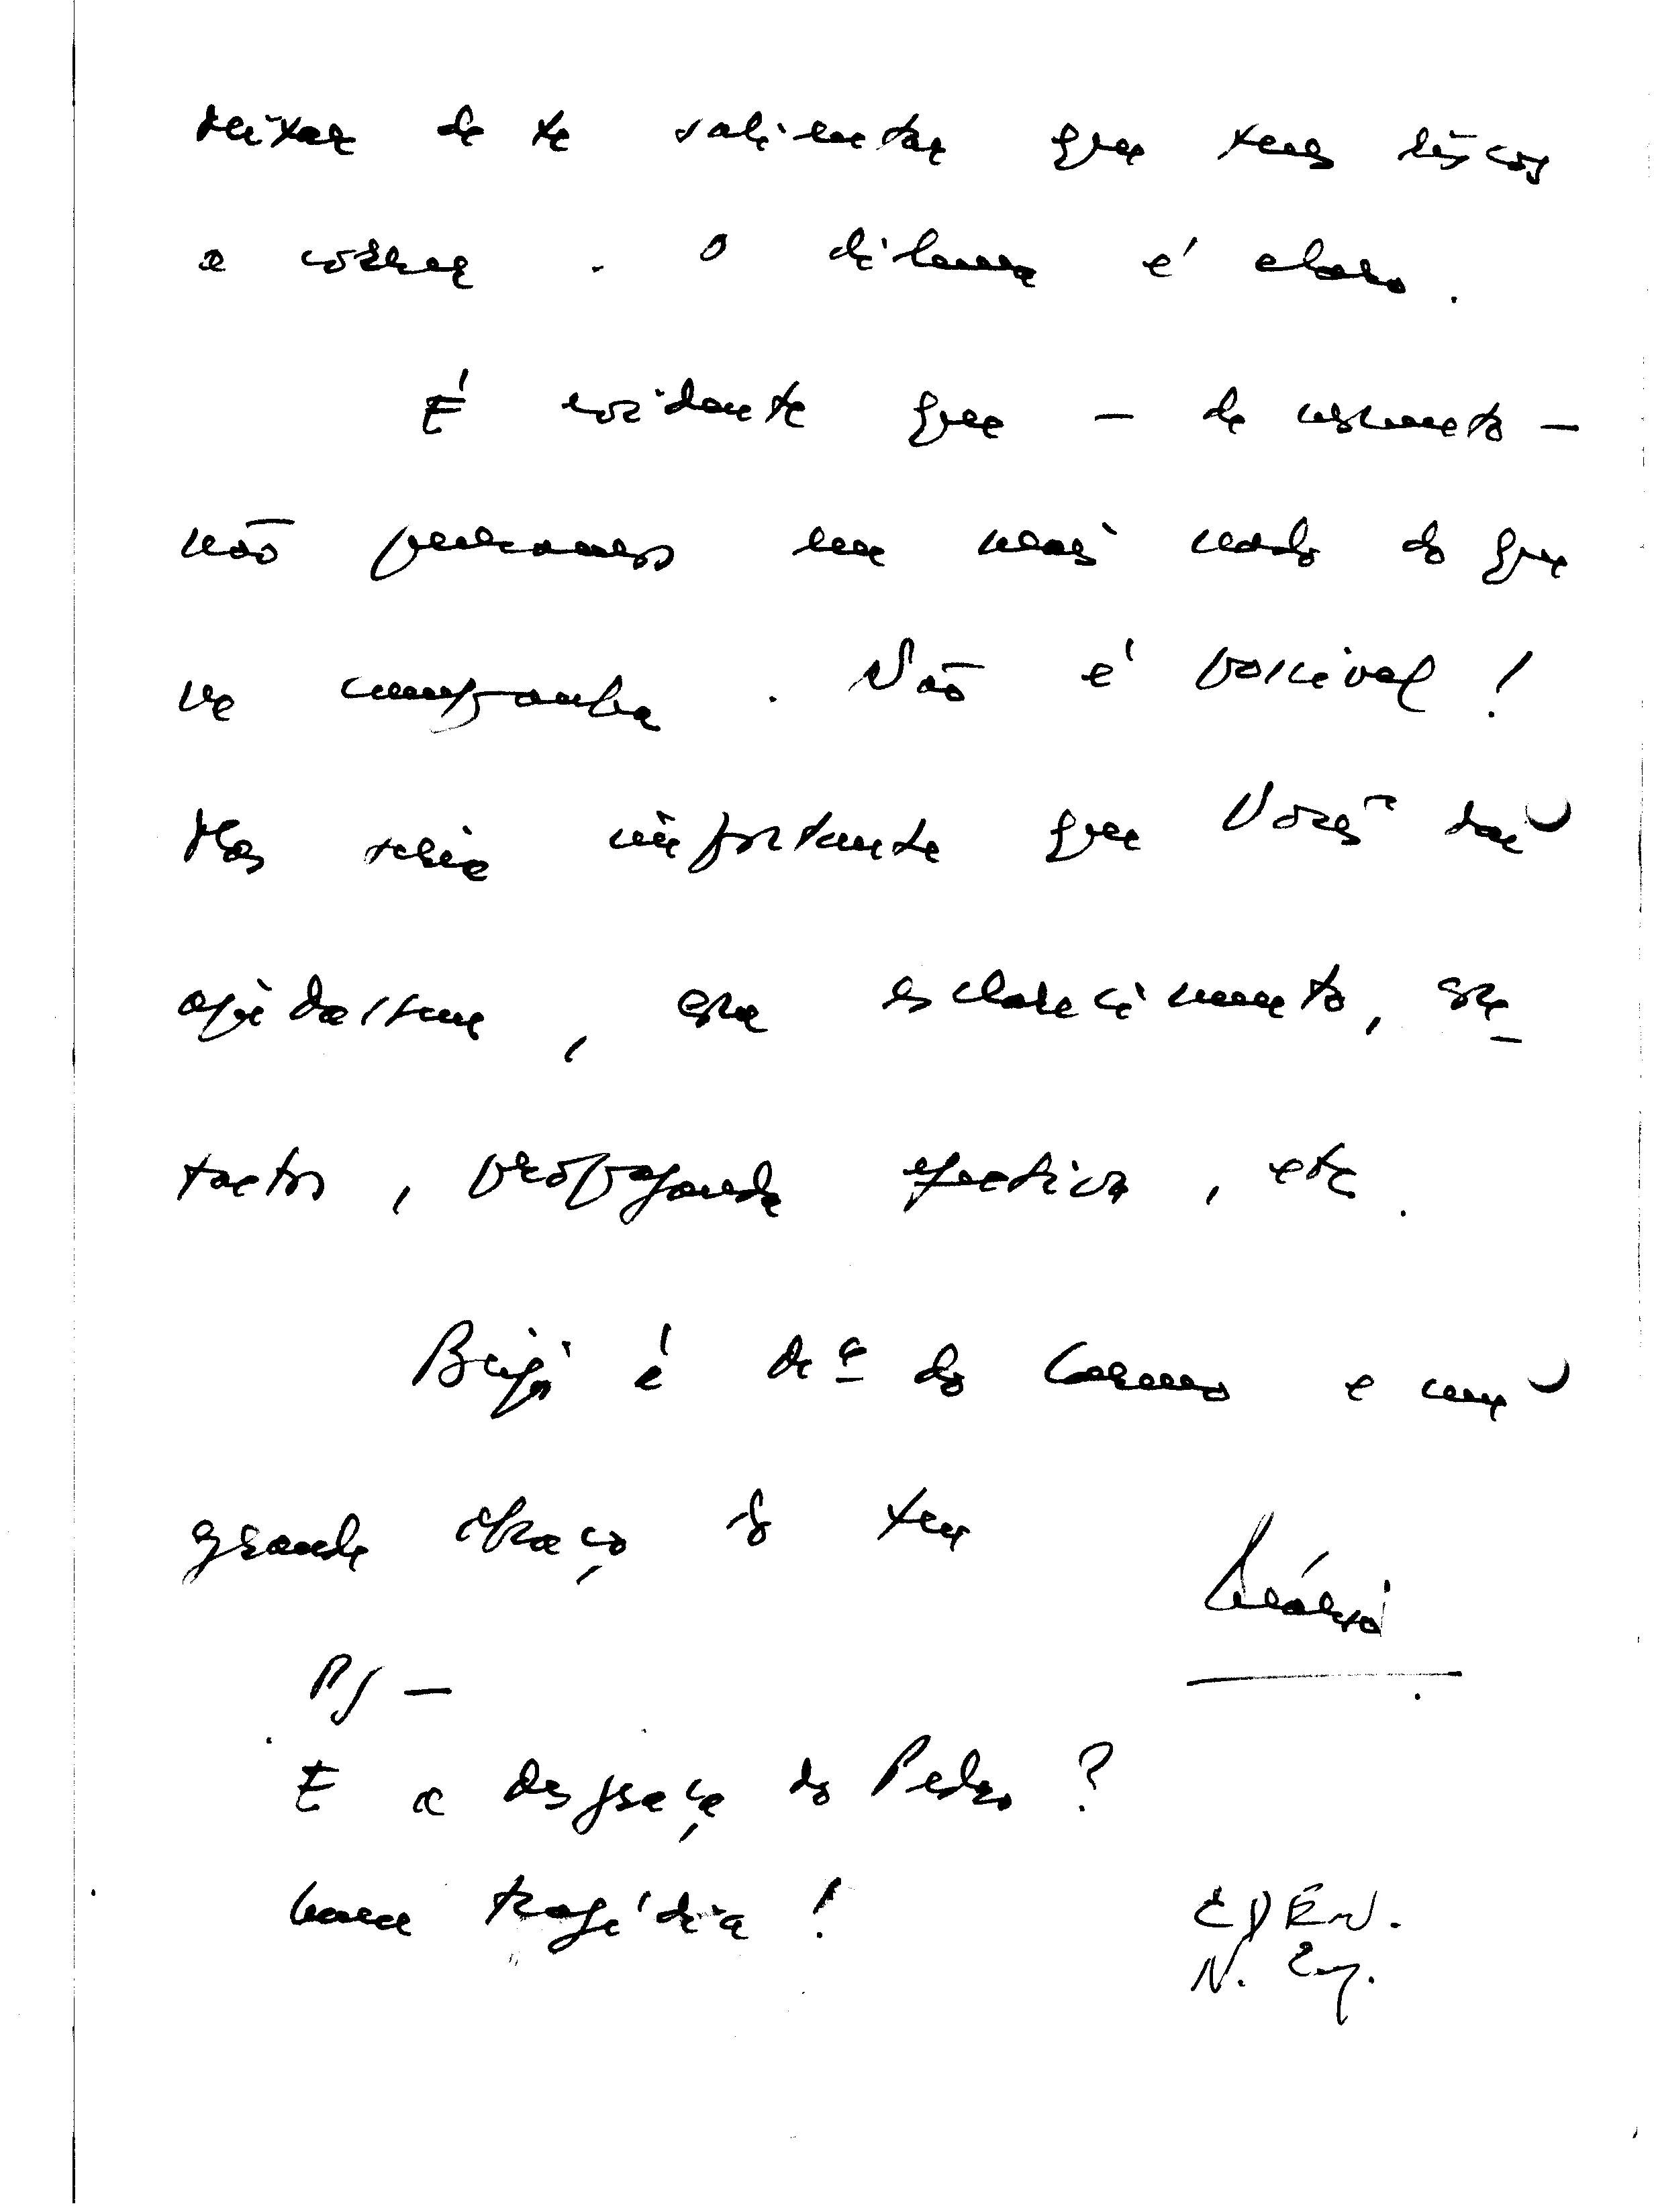 deixar de te salientar que tens riscos
a correr. O dilema é claro.
É evidente que – de momento –
não pensamos em mais nada do que
na campanha. Não é possível!
Mas seria importante que Vocês daí
ajudassem, com esclarecimento, con-
tactos, propaganda efectiva, etc.
Beijos à Mª do Carmo e um
grande abraço do teu
Mário
PS –
E a desgraça do Pedro?
Uma tragédia!
N.